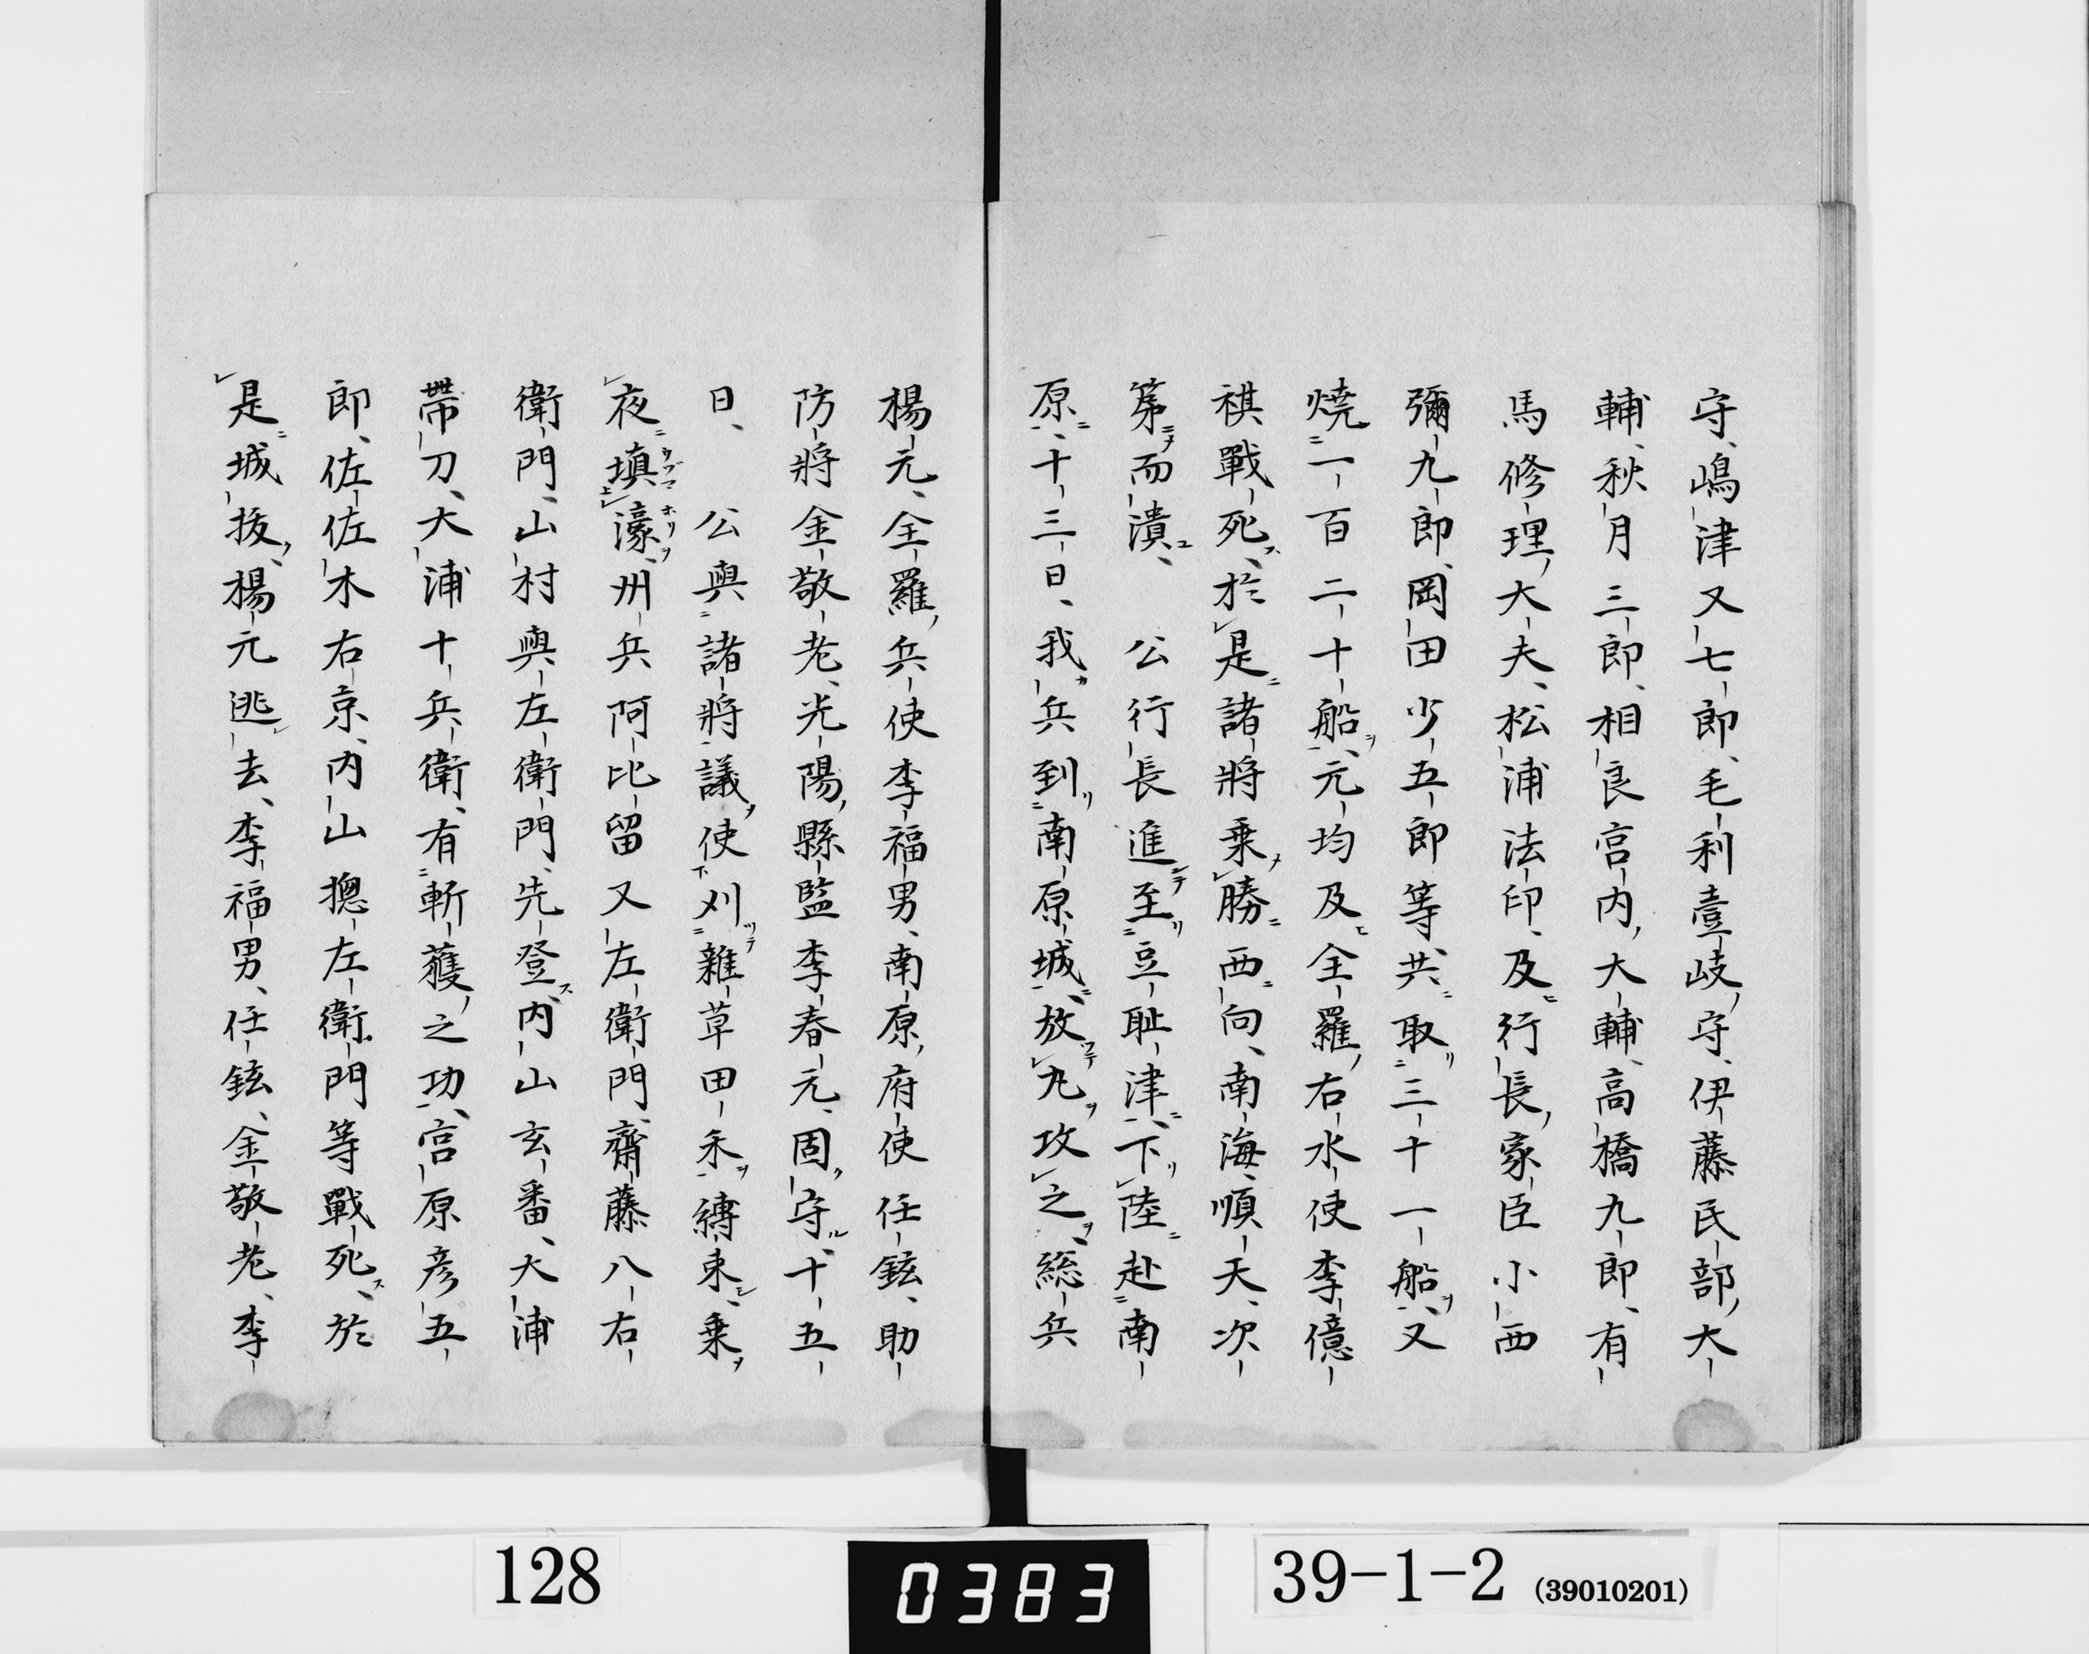 守、嶋津又七郎、毛利壹岐守、伊藤民部大
輔、秋月三郎、相良宮内大輔、高橋九郎、有
馬修理大夫、松浦法印、及行長家臣小西
彌九郎、岡田少五郎等、共取三十一船、又
燒一百二十船、元均及全羅右水使李億
祺戰死、於是諸將乘勝西向、南海、順天、次
第而潰、公行長進至豆耻津、下陸赴南
原、十三日、我兵到南原城、放丸攻之、総兵
楊元、全羅兵使李福男、南原府使任鉉、助
防將金敬老、光陽縣監李春元、固守、十五
日、公與諸將議、使刈雜草田禾縳束、乗
夜填濠、州兵阿比留又左衛門、齋藤八右
衛門、山村與左衛門、先登、内山玄番、大浦
帶刀、大浦十兵衛、有斬蒦之功、宮原彦五
郎、佐佐木右京、内山摠左衛門等戰死、於
是城抜、楊元逃去、李福男、任鉉、金敬老、李
128
0383
39-1-2 (39010201)